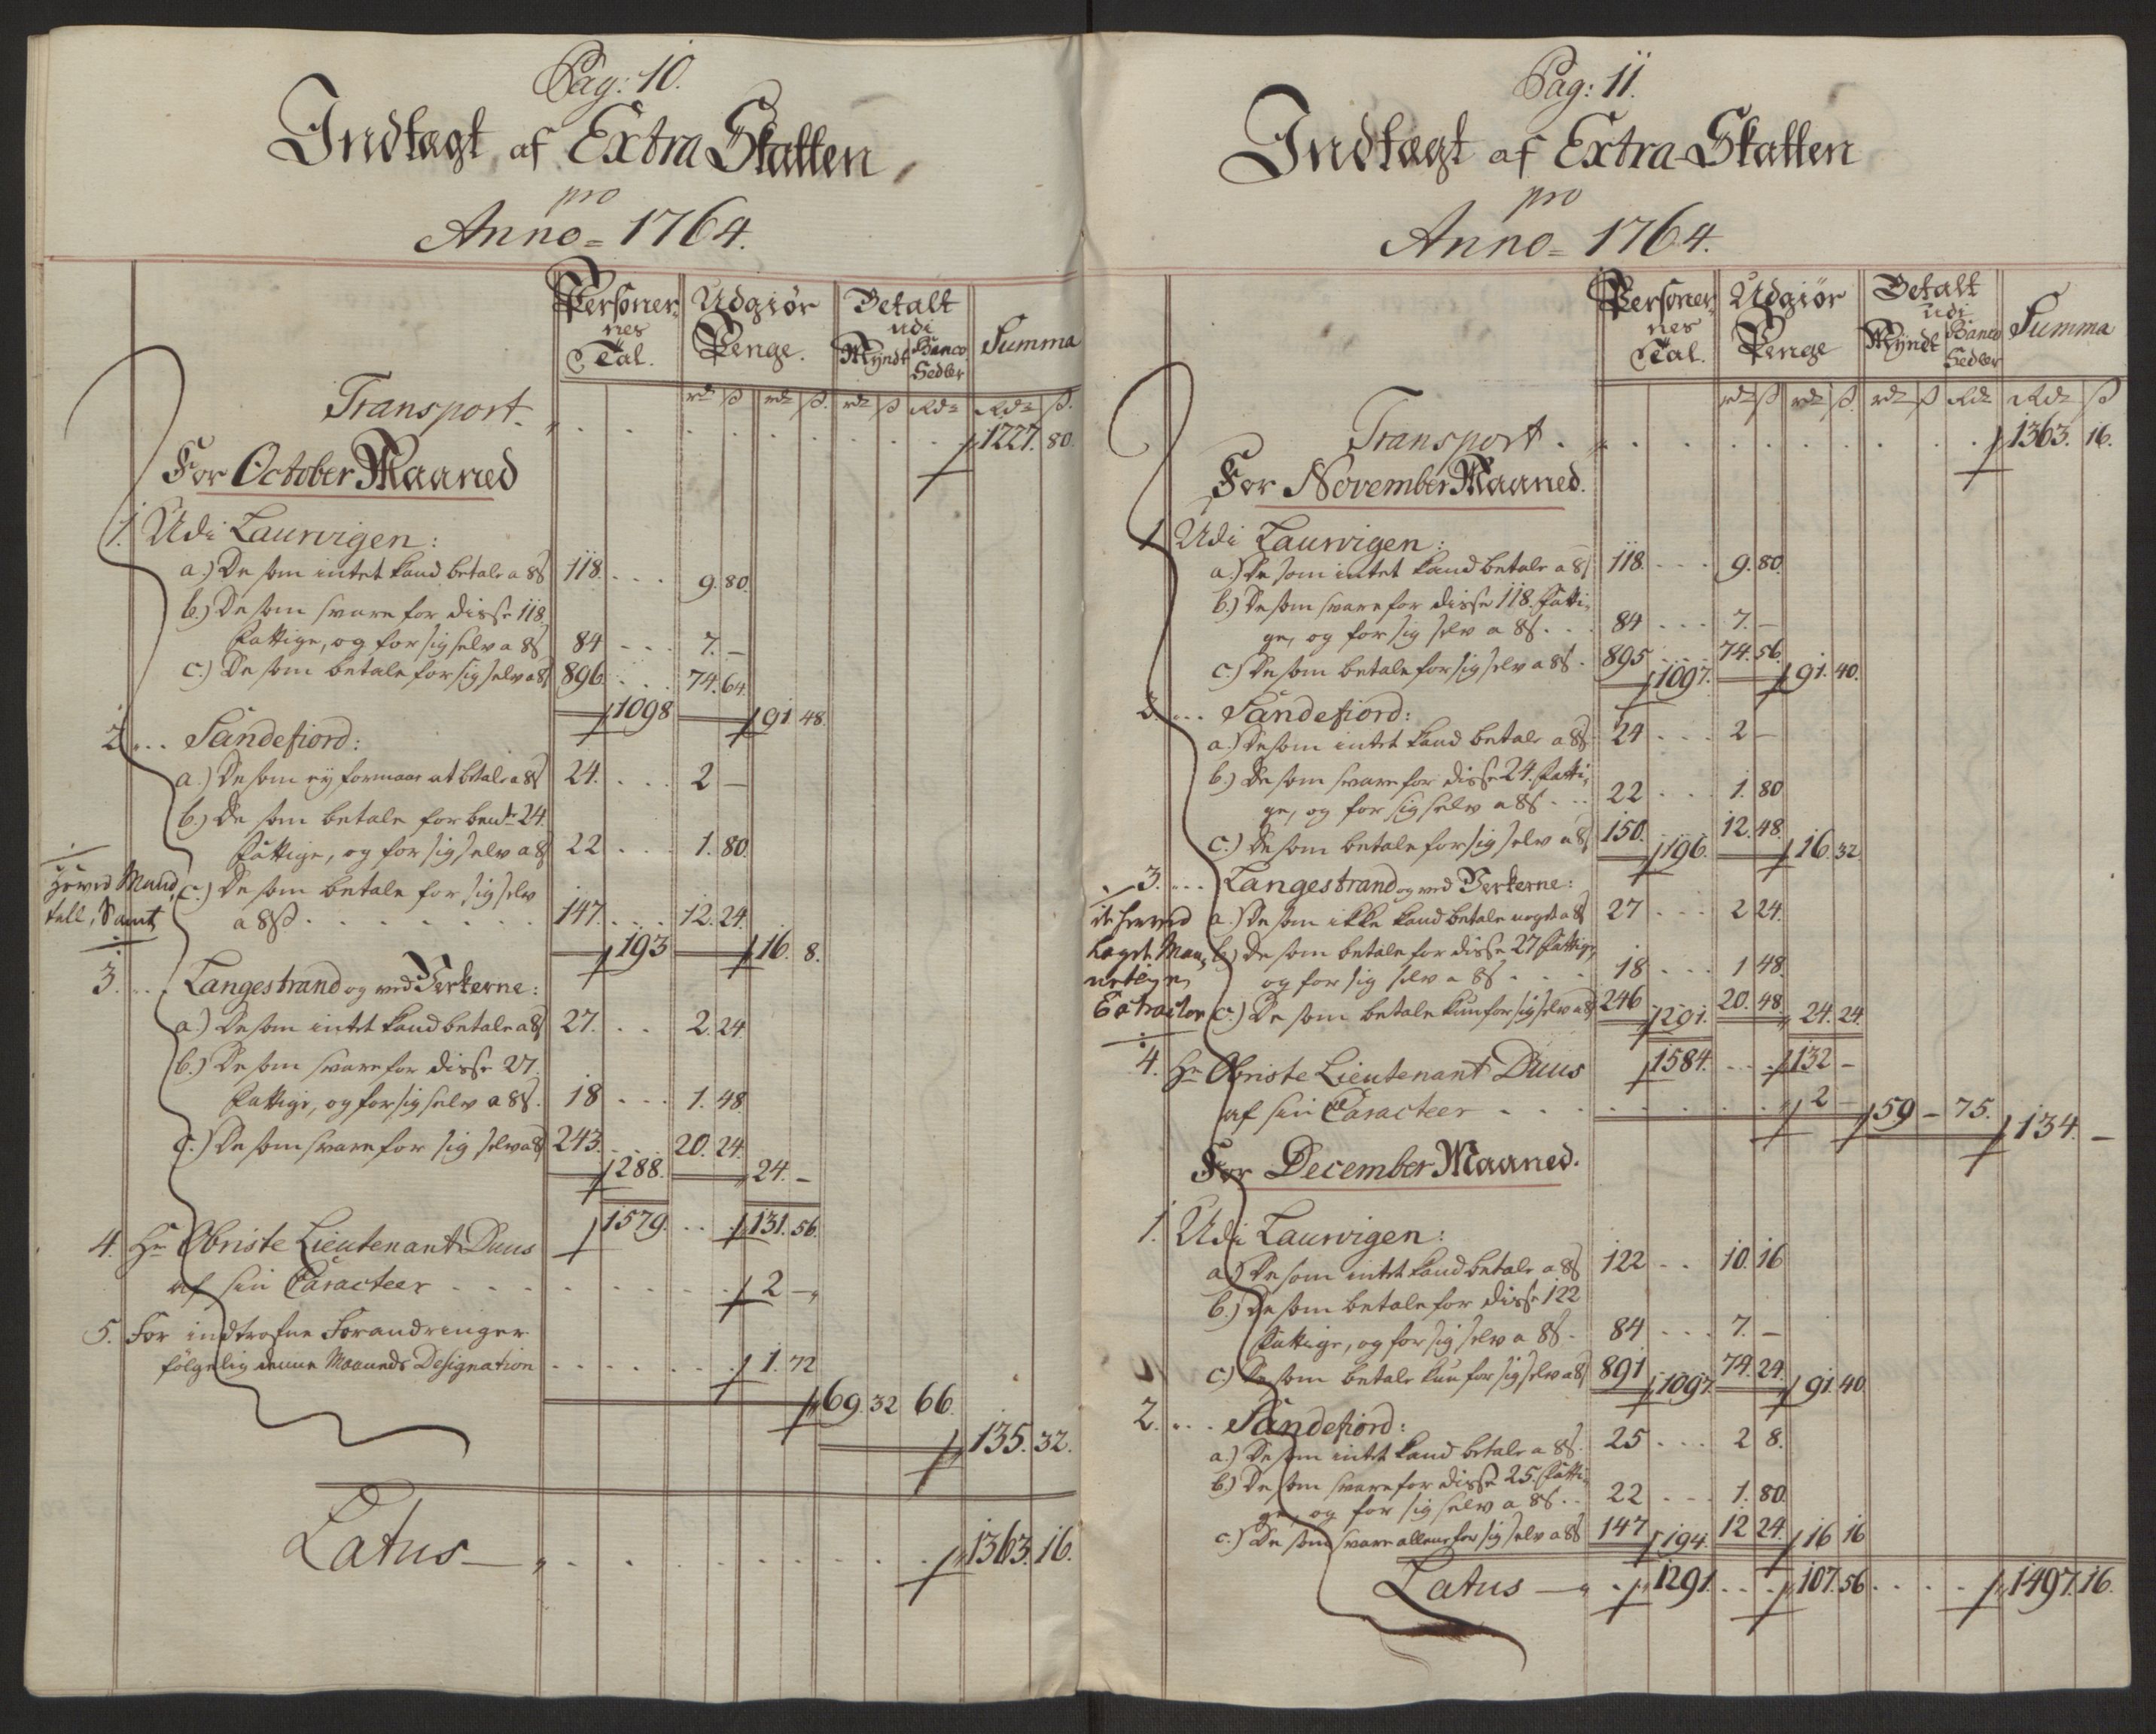 Pag: 10.
Indtægt af Extra Skatten
pro
Anno = 1764.
Personer= Udgiør Betalt
nes Penge. udi Summa
Tal. Myndt Banco
Sedler
rdr ß rdr ß. rdr ß Rdr Rdr ß.
Transport. 1227. 80.
For October Maaned
1. Udi Laurvigen:
a.) De som intet kand betale a 8ß 118. 9. 80.
b.) De som svare for disse 118
Fattige, og for sig selv a 8ß 84 7. –
c.) De som betale for sig selv a 8ß 896. 74. 64.
1098 91. 48.
2. Sandefiord:
a.) De som ey formaar at betale a 8ß 24. 2 –
b.) De som betale for bemte 24.
Fattige, og for sig selv a 8ß 22 1. 80.
c.) De som betale for sig selv
a 8ß. 147. 12. 24.
Mand,
tall, Samt
193 16. 8.
3. Langestrand og ved Verkerne:
a.) De som intet kand betale a 8ß 27. 2. 24.
b.) De som svare for disse 27.
Fattige, og for sig selv a 8ß. 18 1. 48.
c.) De som svare for sig selv a 8ß 243. 20. 24.
288. 24. –
1579. 131. 56.
4. Hr Obriste Lieutenant Duus
af sin Caracteer 2 –
5. For indtrofne Forandringer
følgelig denne Maaneds Designation 1. 72
69. 32 66.
135. 32.
Latus – 1363. 16.
Pag: 11.
Indtægt af Extra-Skatten
pro
Anno = 1764.
Personer= Udgiør Betalt
nes Penge udi Summa
Tal. Myndt Banco
Sedler
rdr ß rdr ß. rdr ß Rdr Rdr ß
Transport. 1363. 16.
For November Maaned.
1. Udi Laurvigen:
a.) De som intet kand betale a 8ß 118. 9. 80.
b.) De som svare for disse 118. Fatti=
ge, og for sig selv a 8ß. 84 7. –
c.) De som betale for sig selv a 8ß. 895 1097. 74. 56. 91. 40.
2. Sandefiord:
a.) De som intet kand betale a 8ß 24 2 –
b.) De som svare for disse 24. Fatti=
ge, og for sig selv a 8ß. 22 1. 80
c.) De som betale for sig selv a 8ß 150. 196. 12. 48. 16. 32
3. Langestrand og ved Verkerne:
a.) De som ikke kand betale noget a 8ß 27 2 24.
b.) De som betale for disse 27 Fattige,
og for sig selv a 8ß. 18 1 48.
c.) De som betale kun for sig selv a 8ß 246 291. 20. 48. 24. 24.
de herved
lagde Man=
Extracter
4. Hr Obriste Lieutenant Duus 1584. 132 –
af sin Caracteer 2 – 59 – 75. 134. –
For December Maaned.
1. Udi Laurvigen:
a.) De som intet kand betale a 8ß 122 10. 16
b.) De som betale for disse 122
Fattige, og for sig selv a 8ß. 84 7. –
c.) De som betale kun for sig selv a 8ß 891 1097. 74. 24. 91. 40.
2. Sandefiord:
a.) De som intet kand betale a 8ß. 25 2 8.
b.) De som svare for disse 25. Fatti=
ge, og for sig selv a 8ß. 22 1. 80.
c.) De som svare allene for sig selv a 8ß 147 194. 12 24. 16 16
Latus – 1291. 107. 56 1497. 16.